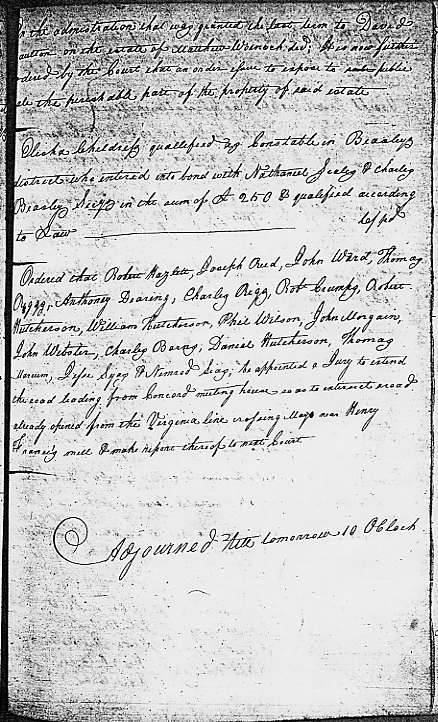 the administration that was granted the last term to David
on the estate of Matthew Decd; It is now further
ordered by the Court that an order issue to expose to public
sale the perishable part of the property of said estate
Elisha Childress qualified as Constable in Beasleys
district who entered into bond with Nathaniel & Charles
Beasley in the sum of £ 250 & qualified according
to Law
Ordered that Robert Hazlett, Joseph Reed, John Ward, Thomas
Riggs, Anthoney Dearing, Charles Rigg, Robt Crump, Robert
Hutcherson, William Hutcherson, Phil Wilson, John Morgain,
John Webster, Charles Barns, Daniel Hutcherson, Thomas
& Nimrod be appointed a Jury to extend
the road leading from Concord meeting house so as to intersect a road
already opened from the Virginia line crossing Mayo near Henry
Francis mill & make report thereof to next Court
Adjourned till tomorrow 10 OClock